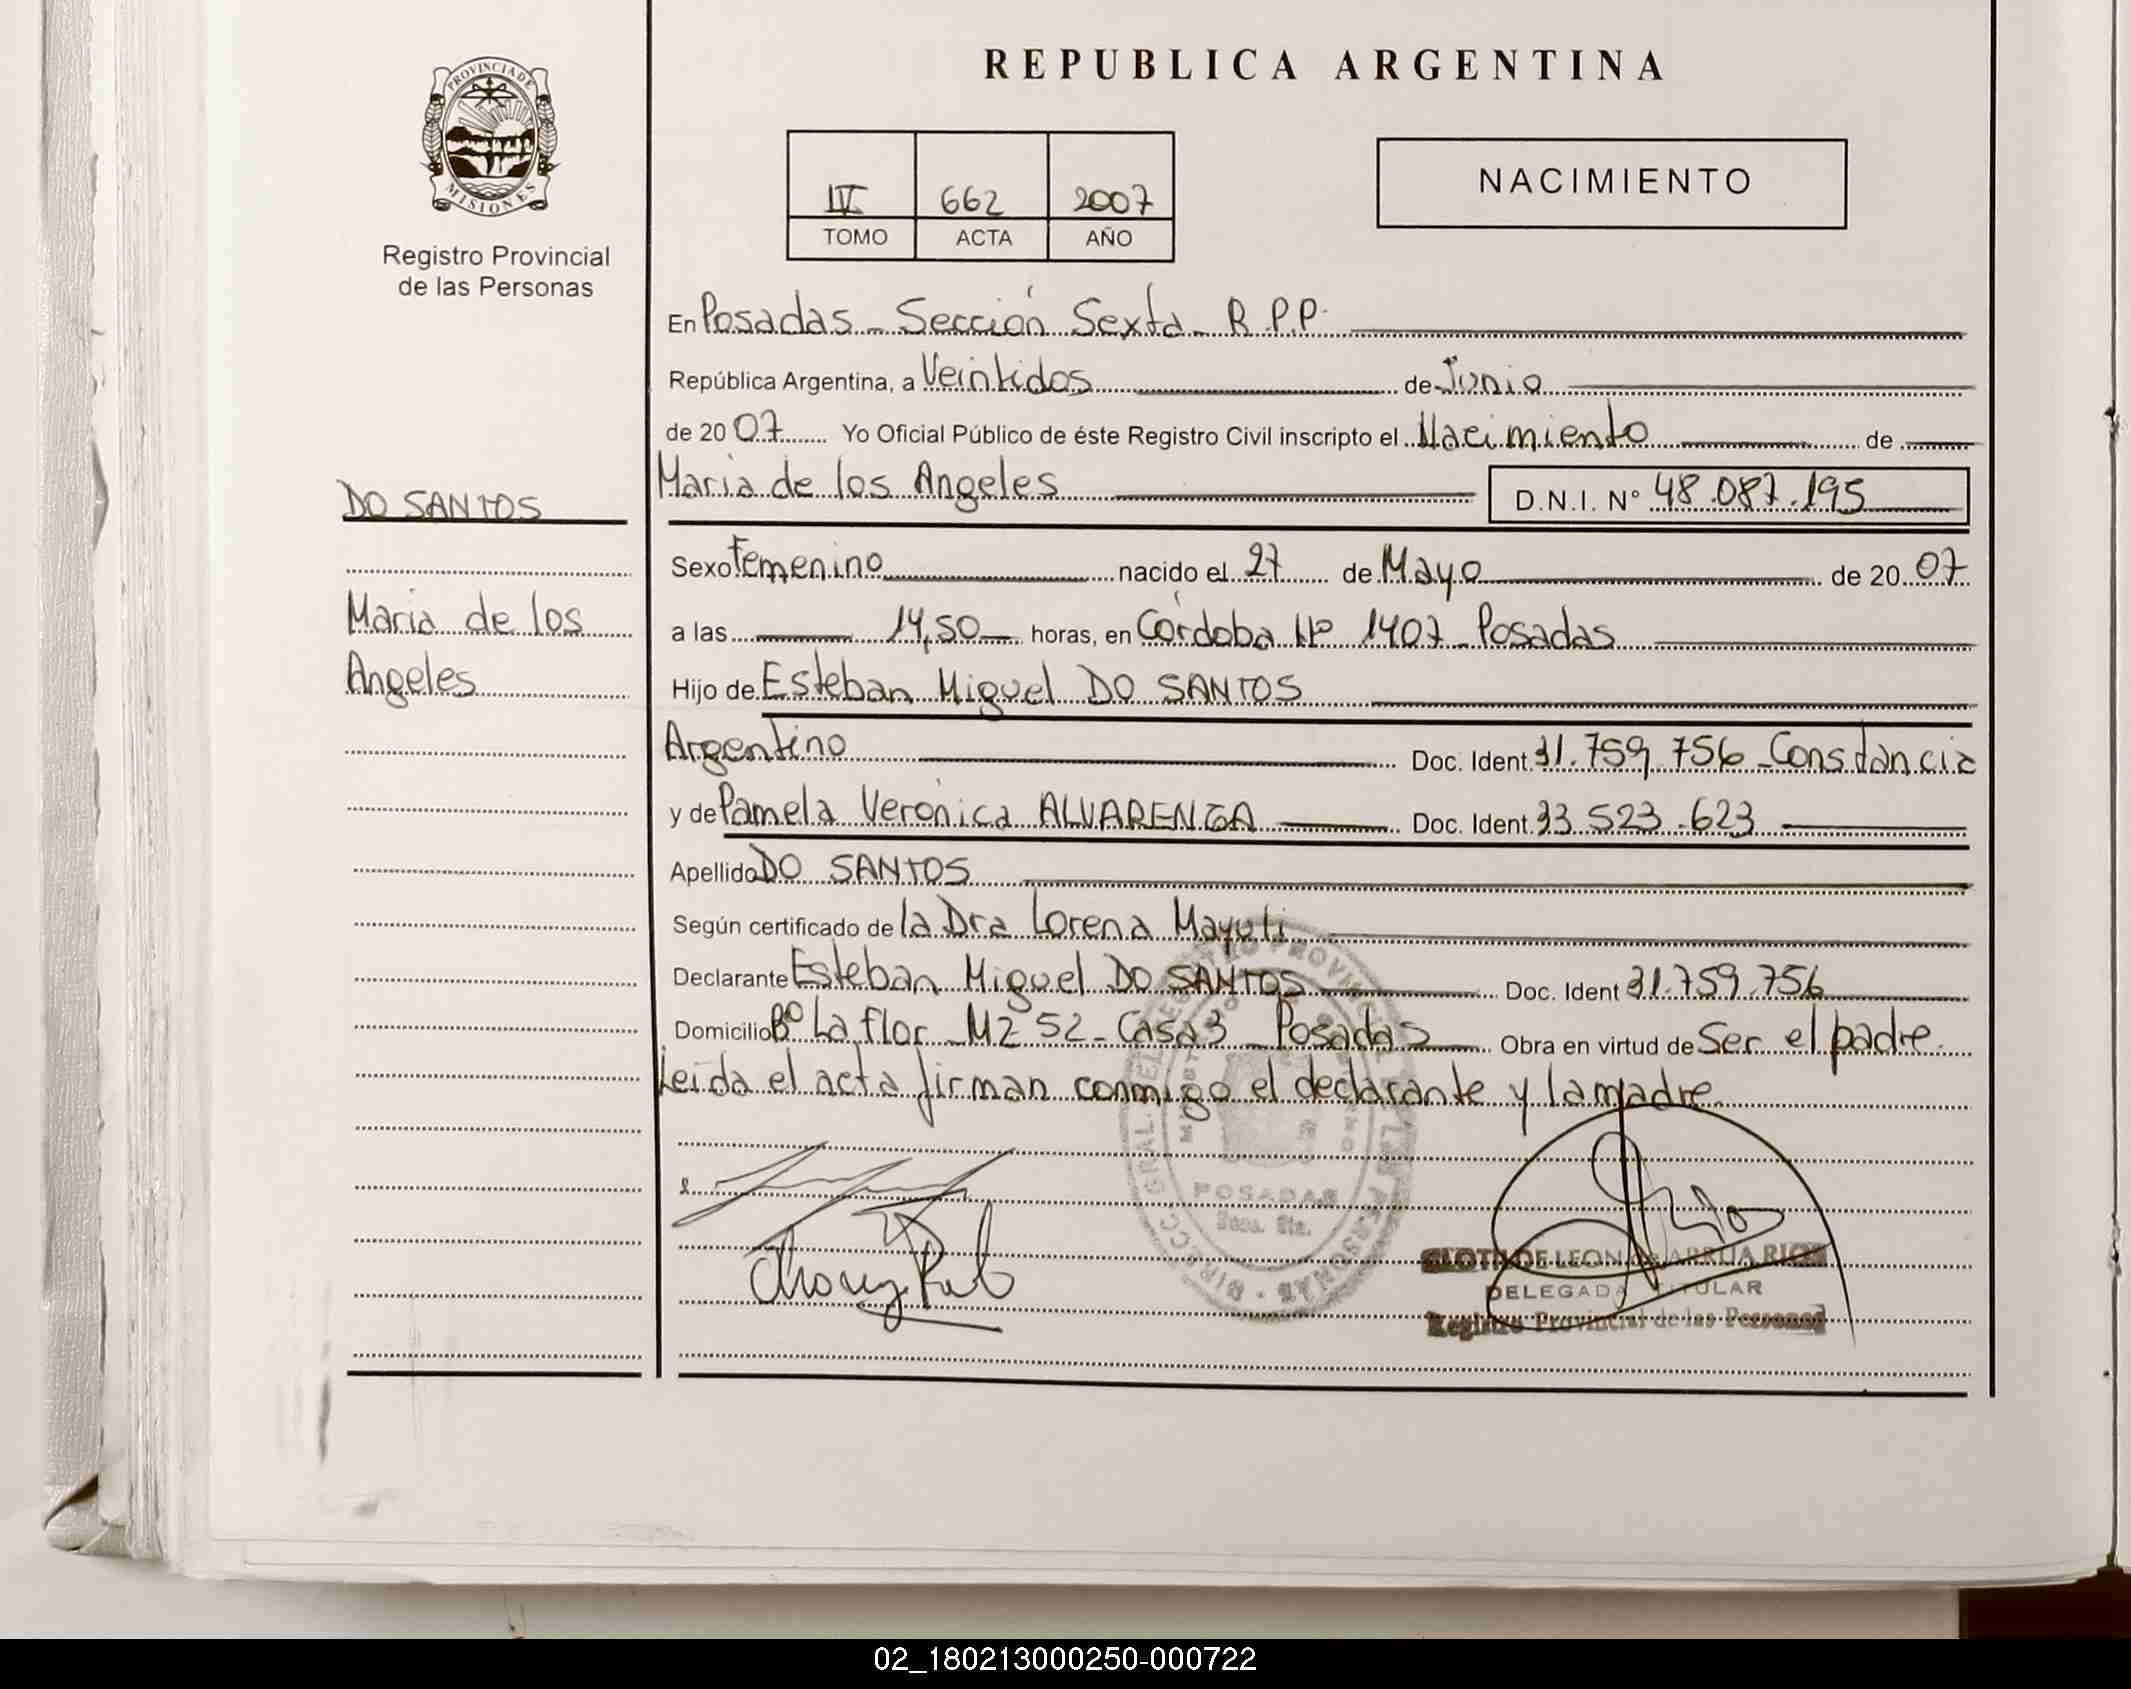 REPUBLICA ARGENTINA
PROVINCIA DE
MISIONES
Registro Provincial
de las Personas
IV 662 2007
TOMO ACTA AÑO
NACIMIENTO
En Posadas - Sección Sexta - R.P.P.
República Argentina, a Veintidos de Junio
de 2007 Yo Oficial Público de éste Registro Civil inscripto el Nacimiento de
Maria de los Angeles D.N.I. Nº 48.087.195
DO SANTOS
Maria de los
Angeles
Sexo Femenino nacido el 27 de Mayo de 2007
a las 14,50 horas, en Córdoba Nº 1407 - Posadas
Hijo de Esteban Miguel DO SANTOS
Argentino Doc. Ident. 31.759.756 - Constancia
y de Pamela Verónica ALVARENGA Doc. Ident. 33.523.623
Apellido DO SANTOS
Según certificado de la Dra Lorena
Declarante Esteban Miguel DO SANTOS Doc. Ident 31.759.756
Domicilio Bº La flor - MZ 52 - Casa 3 - Posadas Obra en virtud de Ser el padre.
Leida el acta firman conmigo el declarante y la madre.
POSADAS
DELEGADA TITULAR
Registro Provincial de las Personas
02_180213000250-000722